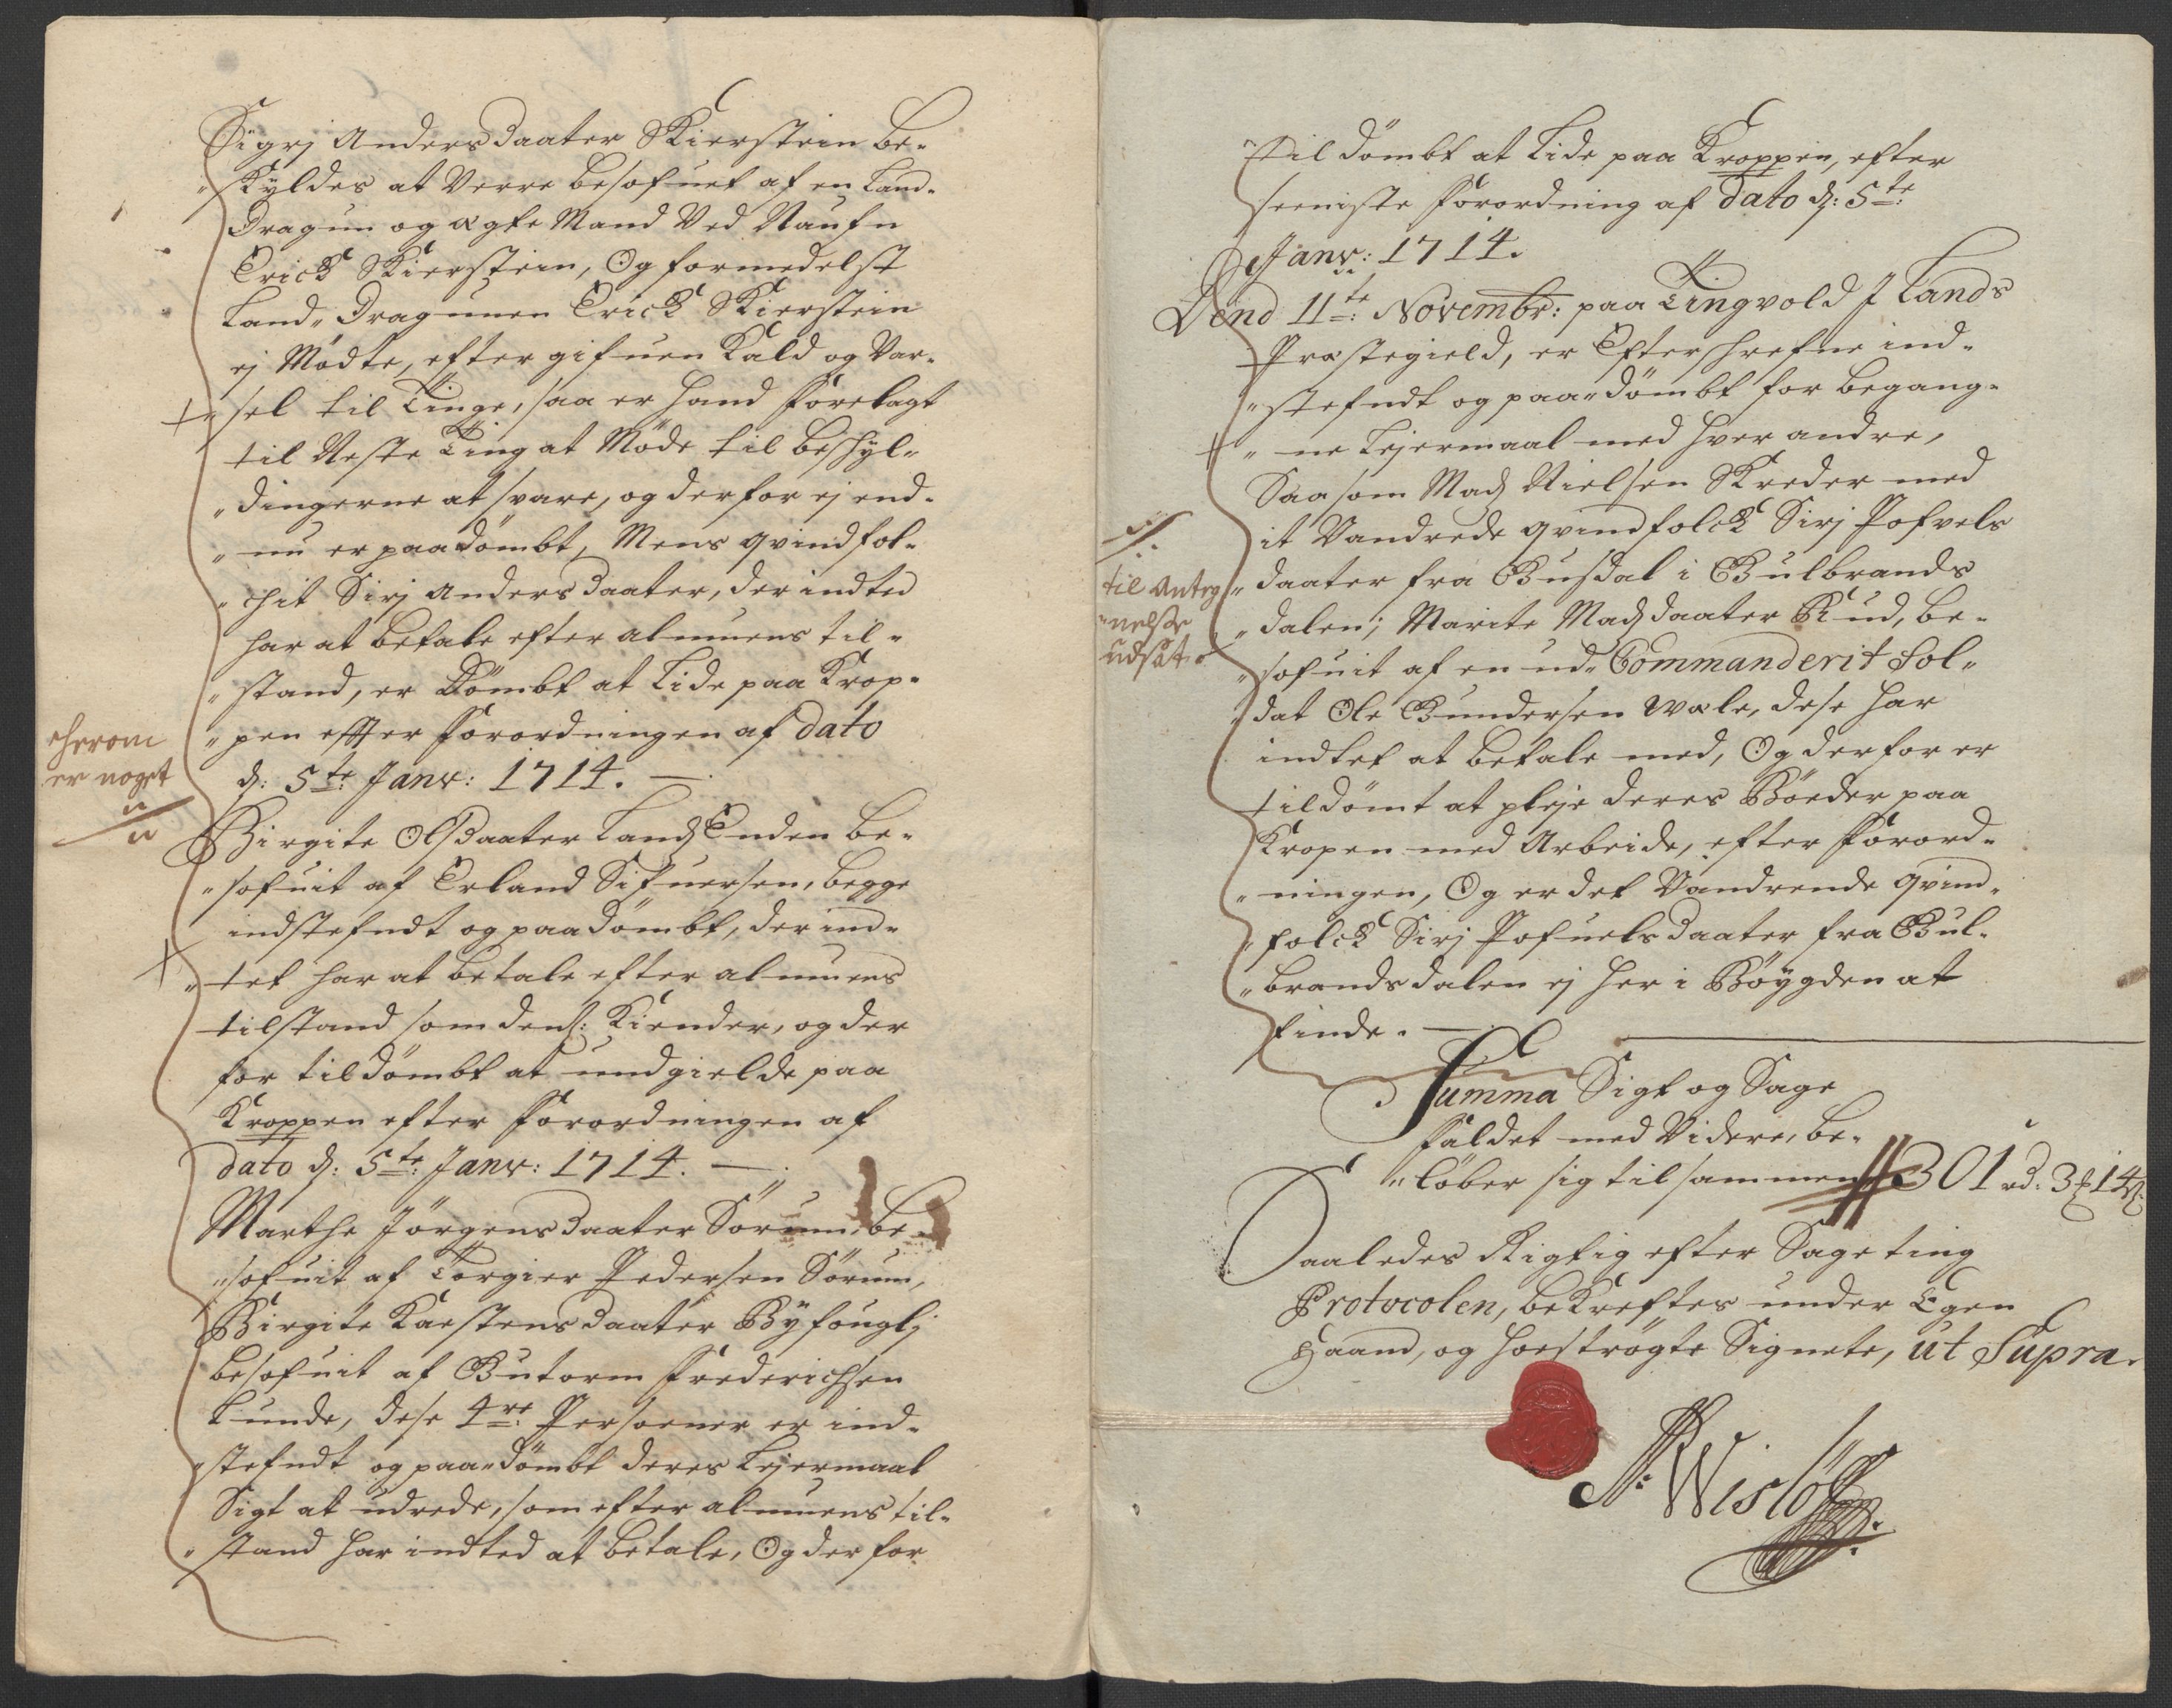 Sigrj Andersdaater Skierstein be-
„skyldes at Verre besofuet af en Land-
Dragun og ægte Mand Ved Naufn
Erick Skierstein, Og formedelst
Land„Dragunen Erick Skierstein
ej Mødte, efter gifuen Kald og Var-
„sel til Tinge, saa er hand forelagt
til Neste Ting at Møde til beskyl-
„dingerne at svare, og derfor ej end-
„nu er paadømbt, Mens qvindfol-
„chit Sirj Andersdaater, der indted
har at betale efter almuens til-
„stand, er Dømbt at Lide paa Krop-
„pen effter forordningen af dato
d: 5te: Janv: 1714.
herom
er noget
Birgite Olsdaater Lands Enden be-
„sofuit af Erland Sifuersen, begge
indstefndt og paadømbt, der ind-
„tet har at betale efter almuens
tilstand som dend: Kiender, og der
for tildømbt at undgielde paa
Kroppen efter forordningen af
dato d: 5te: Janv: 1714.
Marthe Jørgensdaater Sørum, be-
„sofuit af Torgier Pedersen Sørum,
Birgite Karstensdaater Byfouglj
besofuit af Gutorm Frederichsen
Lunde, dese 4re: Persoener er ind-
„stefndt og paa„dømbt deres Lejermaal
Sigt at udrede, som efter almuens til-
„stand har indted at betale, Og der for
tildømbt at Lide paa Kroppen, efter
seeniste forordning af dato d: 5te:
Janv: 1714.
Dend 11te: Novembr: paa Tingvold J Lands
Præstegield, er Efterskrefne ind-
„stefndt og paa„dømbt for begang-
„ne Lejermaal med hver andre,
Saasom Mads Nielsen Skreder med
it Vandrede qvindfolck Sirj Pofvels
til Anteg
„nelse
udsat
„daater fra Busdal i Gulbrands
„dalen; Marite Madsdaater Rud, be-
„sofuit af en ud„Commanderit Sol-
„dat Ole Gundersen Wole, dese har
indtet at betale med, Og derfor er
tildømt at pleje deres Bøeder paa
Kropen med Arbeide, efter forord-
„ningen, Og er det Vandrende qvind-
„folck Sirj Pofuelsdaater fra Gul-
„brandsdalen ej her i Bøygden at
finde.
Summa Sigt og Sage
faldet med Videre, be-
„løber sig tilsammen 301 rd: 3 ₰ 14 s:
Saaledes Rigtig efter Sageting
Protocolen, bekreftes under Egen
Haand, og hoestrøgte Signete, ut Supra.
N: Wisløff